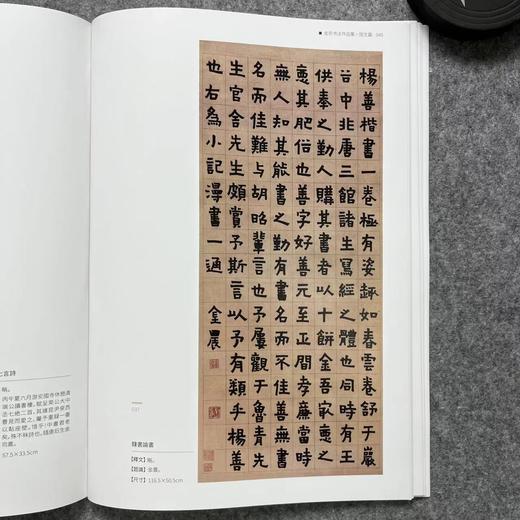 金农书法作品集 045
楊善楷書一卷極有姿趣如春雲卷舒于巖
谷中非唐三館諸生寫經之體也同時有王
供奉之勤人購其書者以十餅金吾最惡之
惡其肥俗也善字好善元至正間孝廉當時
無人知其能書之勤有書名而不佳善無書
名而佳難与胡昭輩言也予屢觀于魯青先
生官舍先生頗賞予斯言以予有類乎楊善
也右為小記漫書一通
金農
031
隸書論書
【释文】略。
【题識】金農。
【尺寸】116.5×50.5cm
七言詩
略。
57.5×33.5cm